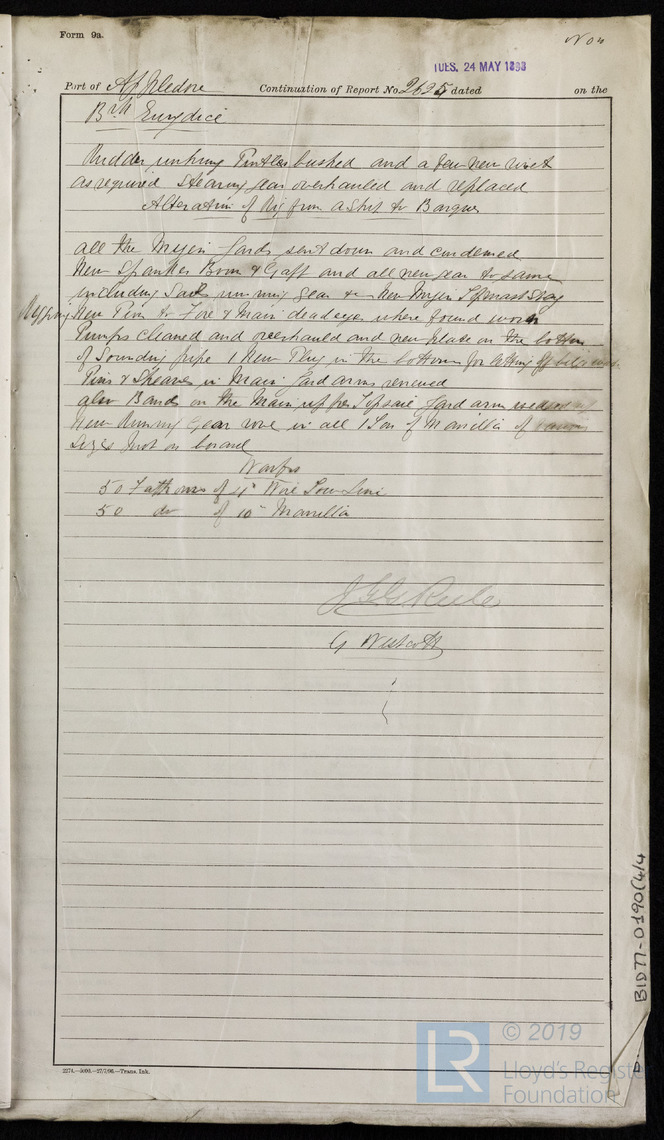 Form 9a.
TUES. 24 MAY 1898
Port of Appledore Continuation of Report No. 2625 dated on the
Eurydice
Rudder unhung Pintles bushed and a few new rivets
as required Stearing gear overhauled and replaced
Alteration of Rig from a Ship to Barque
all the Mizen Yards sent down and condemed
New Spanker Boom & Gaff and all new gear to same
including Sails running gear & New Mizen Topmast Stay
New Pins to Fore & Main deadeyes where found worn
Pumps cleaned and overhauled and new plate on the bottom
of Sounding pipe 1 New Plug in the bottom for letting off bilge
Pins & Sheaves in Main Yard arms renewed
also Bands on the Main upper Topsail Yard arm
New Running Gear rove in all 1 Ton of Manilla of various
sizes put on board
Warps
50 Fathoms of 4" Wire Tow Line
50 do of 10" Manilla
G Westcott
2274.—5000.—27/7/96.—Trans. Ink.
BID77-0190(4/4
LR © 2019
Lloyd's Register
Foundation